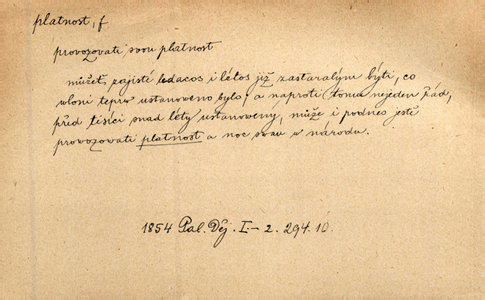 platnost, f.
provozovati svou platnost
můžeť zajisté ledacos i létos již zastaralým býti, co
vloni teprv ustanoveno bylo; a naproti tomu nejeden řád,
před tisíci snad léty ustanovený, může i podnes ještě
provozovati platnost a moc svou v národu.
1854 Pal. Děj. I-2. 294.10.